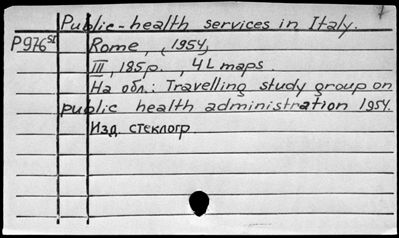 Public-health services in Italy.
P976SI Rome, (1954)
III, 185 p. , 4 L maps.
На обл.: Travelling study group on
public health administration 1954.
Изд. стеклогр.